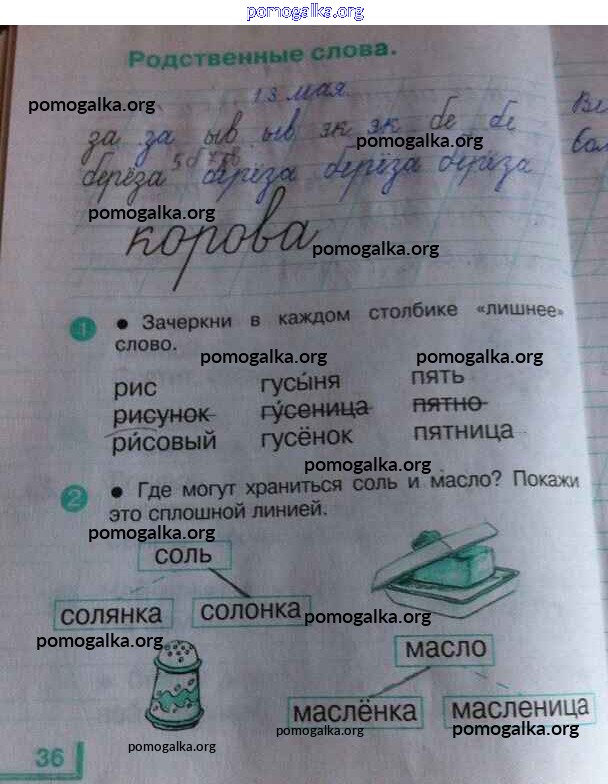 pomogalka.org
Родственные слова.
13 мая
pomogalka.org
за за ыв ыв эк эк бе бе
pomogalka.org
берёза берёза берёза берёза
pomogalka.org
корова
pomogalka.org
1 • Зачеркни в каждом столбике «лишнее»
слово.
pomogalka.org pomogalka.org
рис гусы́ня пять
рисунок гу́сеница пятно
ри́совый гусёнок пятница
pomogalka.org
2 • Где могут храниться соль и масло? Покажи
это сплошной линией.
pomogalka.org
соль
солянка солонка
pomogalka.org
pomogalka.org
масло
маслёнка масленица
pomogalka.org
pomogalka.org
pomogalka.org
36